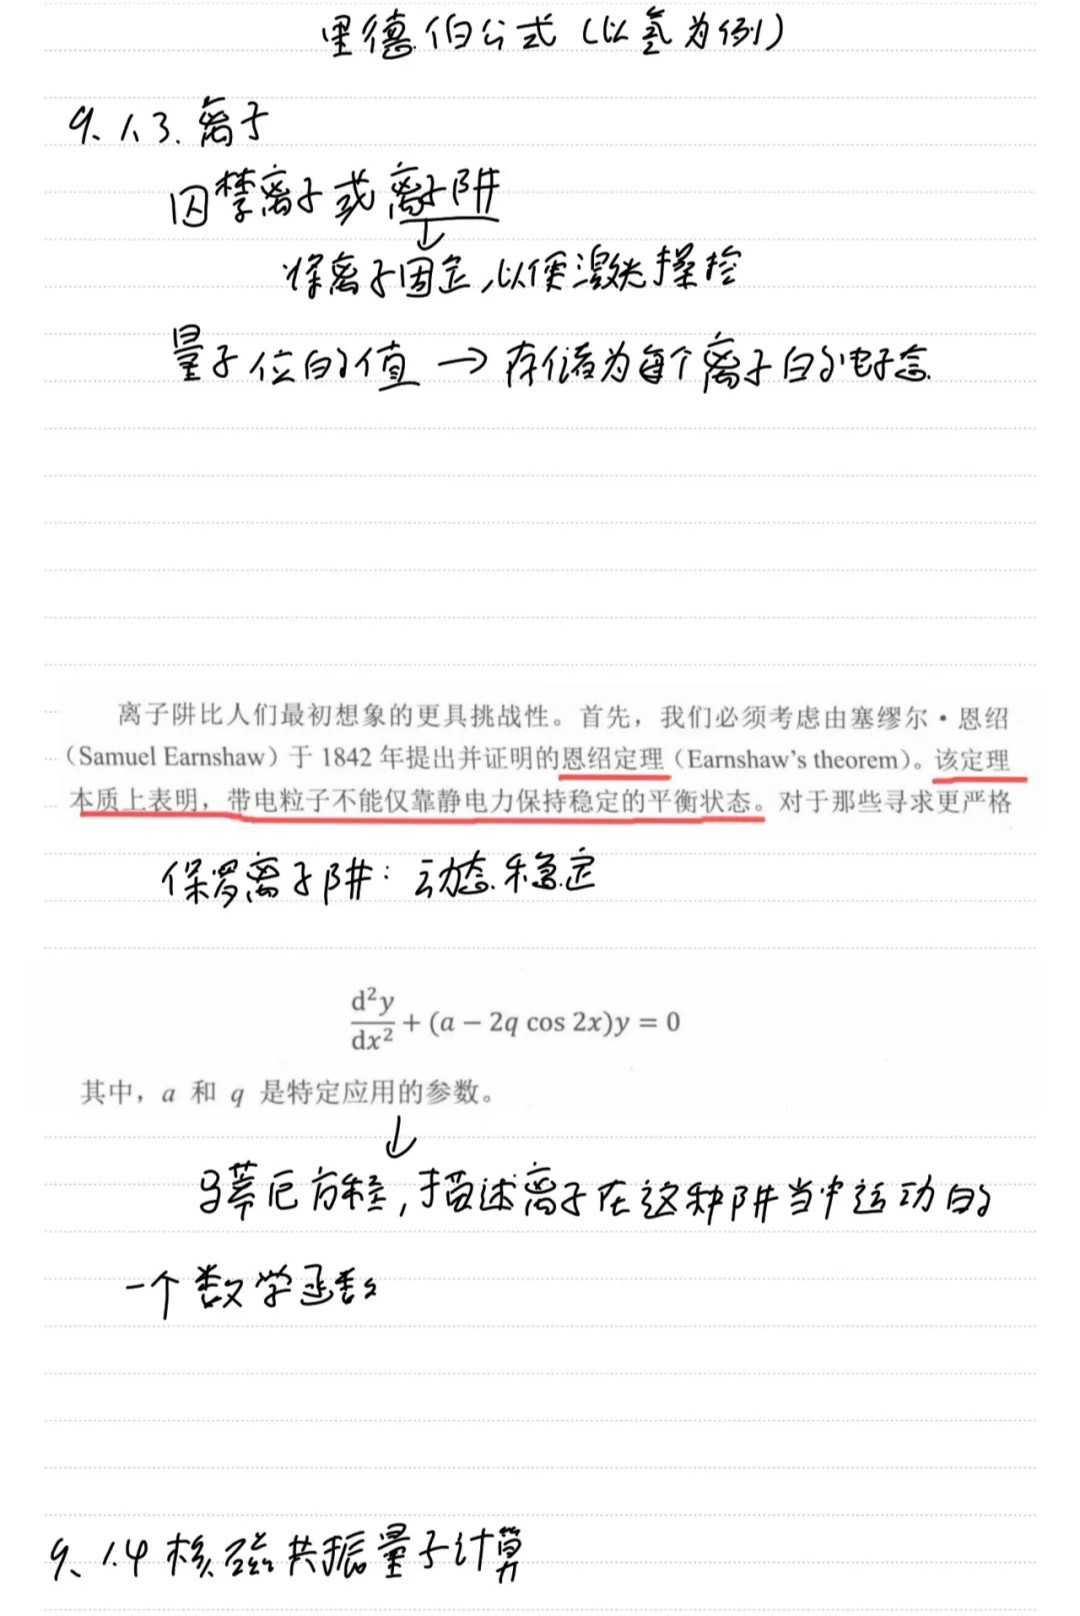 里德伯公式（以氢为例）
9.1.3.离子
囚禁离子或离子阱
↓
将离子固定,以便激光操控
量子位的值 → 存储为每个离子的电子态.
离子阱比人们最初想象的更具挑战性。首先，我们必须考虑由塞缪尔·恩绍
（Samuel Earnshaw）于 1842 年提出并证明的恩绍定理（Earnshaw's theorem）。该定理
本质上表明，带电粒子不能仅靠静电力保持稳定的平衡状态。对于那些寻求更严格
保罗离子阱: 动态稳定
d²y/dx² + (a − 2q cos 2x)y = 0
其中，a 和 q 是特定应用的参数。
↓
马蒂厄方程,描述离子在这种阱当中运动的
一个数学函数
9.1.4 核磁共振量子计算